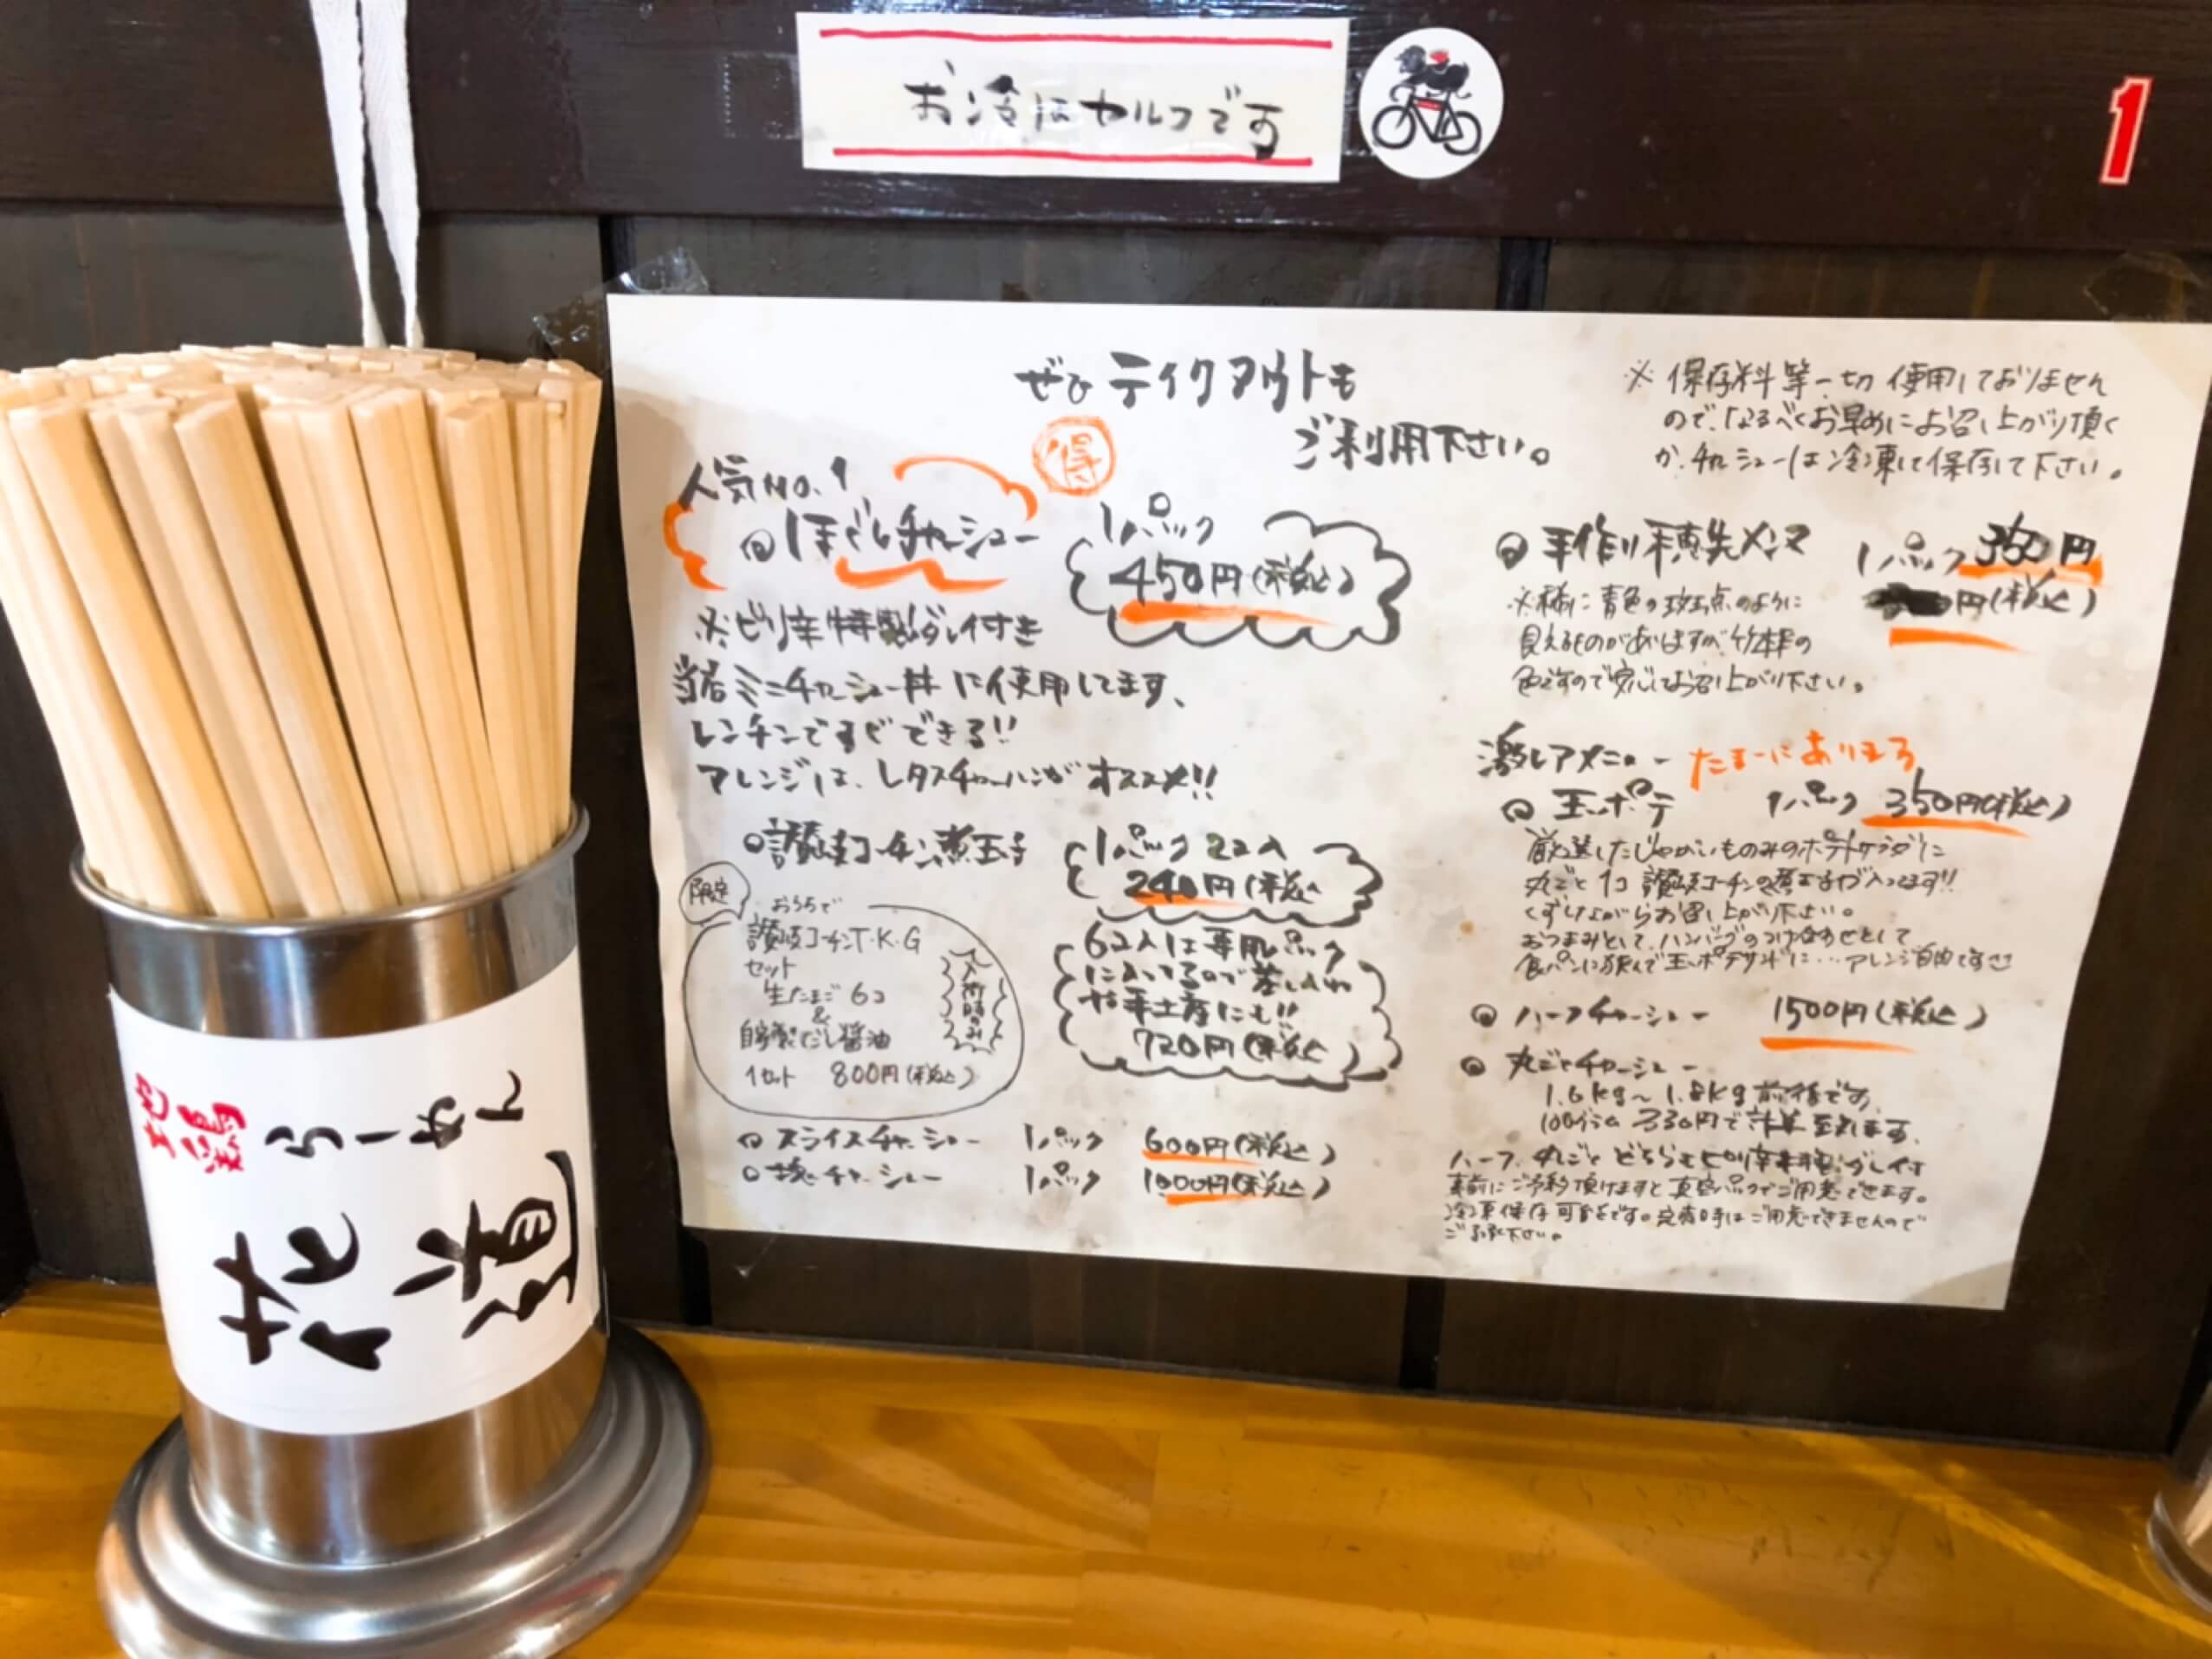 お冷はセルフです
1
ぜひテイクアウトも
ご利用下さい。
得
人気No.1
◎ほぐしチャーシュー
1パック
450円(税込)
※ピリ辛特製ダレ付き
当店ミニチャーシュー丼に使用してます、
レンチンですぐできる!!
アレンジは、レタスチャーハンがオススメ!!
◎讃岐コーチン煮玉子
1パック 2コ入
240円(税込
6コ入は専用パック
に入ってるので差し入れ
や手土産にも!!
720円(税込)
限定
おうちで
讃岐コーチンT・K・G
セット
生たまご 6コ
&
自家製だし醤油
1セット 800円(税込)
入荷時のみ
◎スライスチャーシュー 1パック 600円(税込)
◎塊チャーシュー 1パック 1000円(税込)
※保存料等一切使用しておりません
ので、なるべくお早めにお召し上がり頂く
か、チャーシューは冷凍して保存して下さい。
◎手作り穂先メンマ 1パック 350円
円(税込)
※稀に青色の斑点のように
見えるものがありますが、竹本来の
色ですので安心してお召し上がり下さい。
激レアメニュー たまーにあります
◎玉ポテ 1パック 350円(税込)
厳選したじゃがいものみのポテトサラダに
丸ごと1コ讃岐コーチンの煮玉子が入ってます!!
くずしながらお召し上がり下さい。
おつまみとして、ハンバーグのつけ合わせとして
食パンに挟んで玉ポテサンドに…アレンジ自由です
◎ハーフチャーシュー 1500円(税込)
◎丸ごとチャーシュー
1.6kg~1.8kg前後です、
100グラム 330円で計算致します、
ハーフ、丸ごとどちらもピリ辛特製ダレ付
事前にご予約頂けますと真空パックでご用意できます。
冷凍保存可能です。完売時はご用意できませんので
ご了承下さい。
地鶏
らーめん
花道